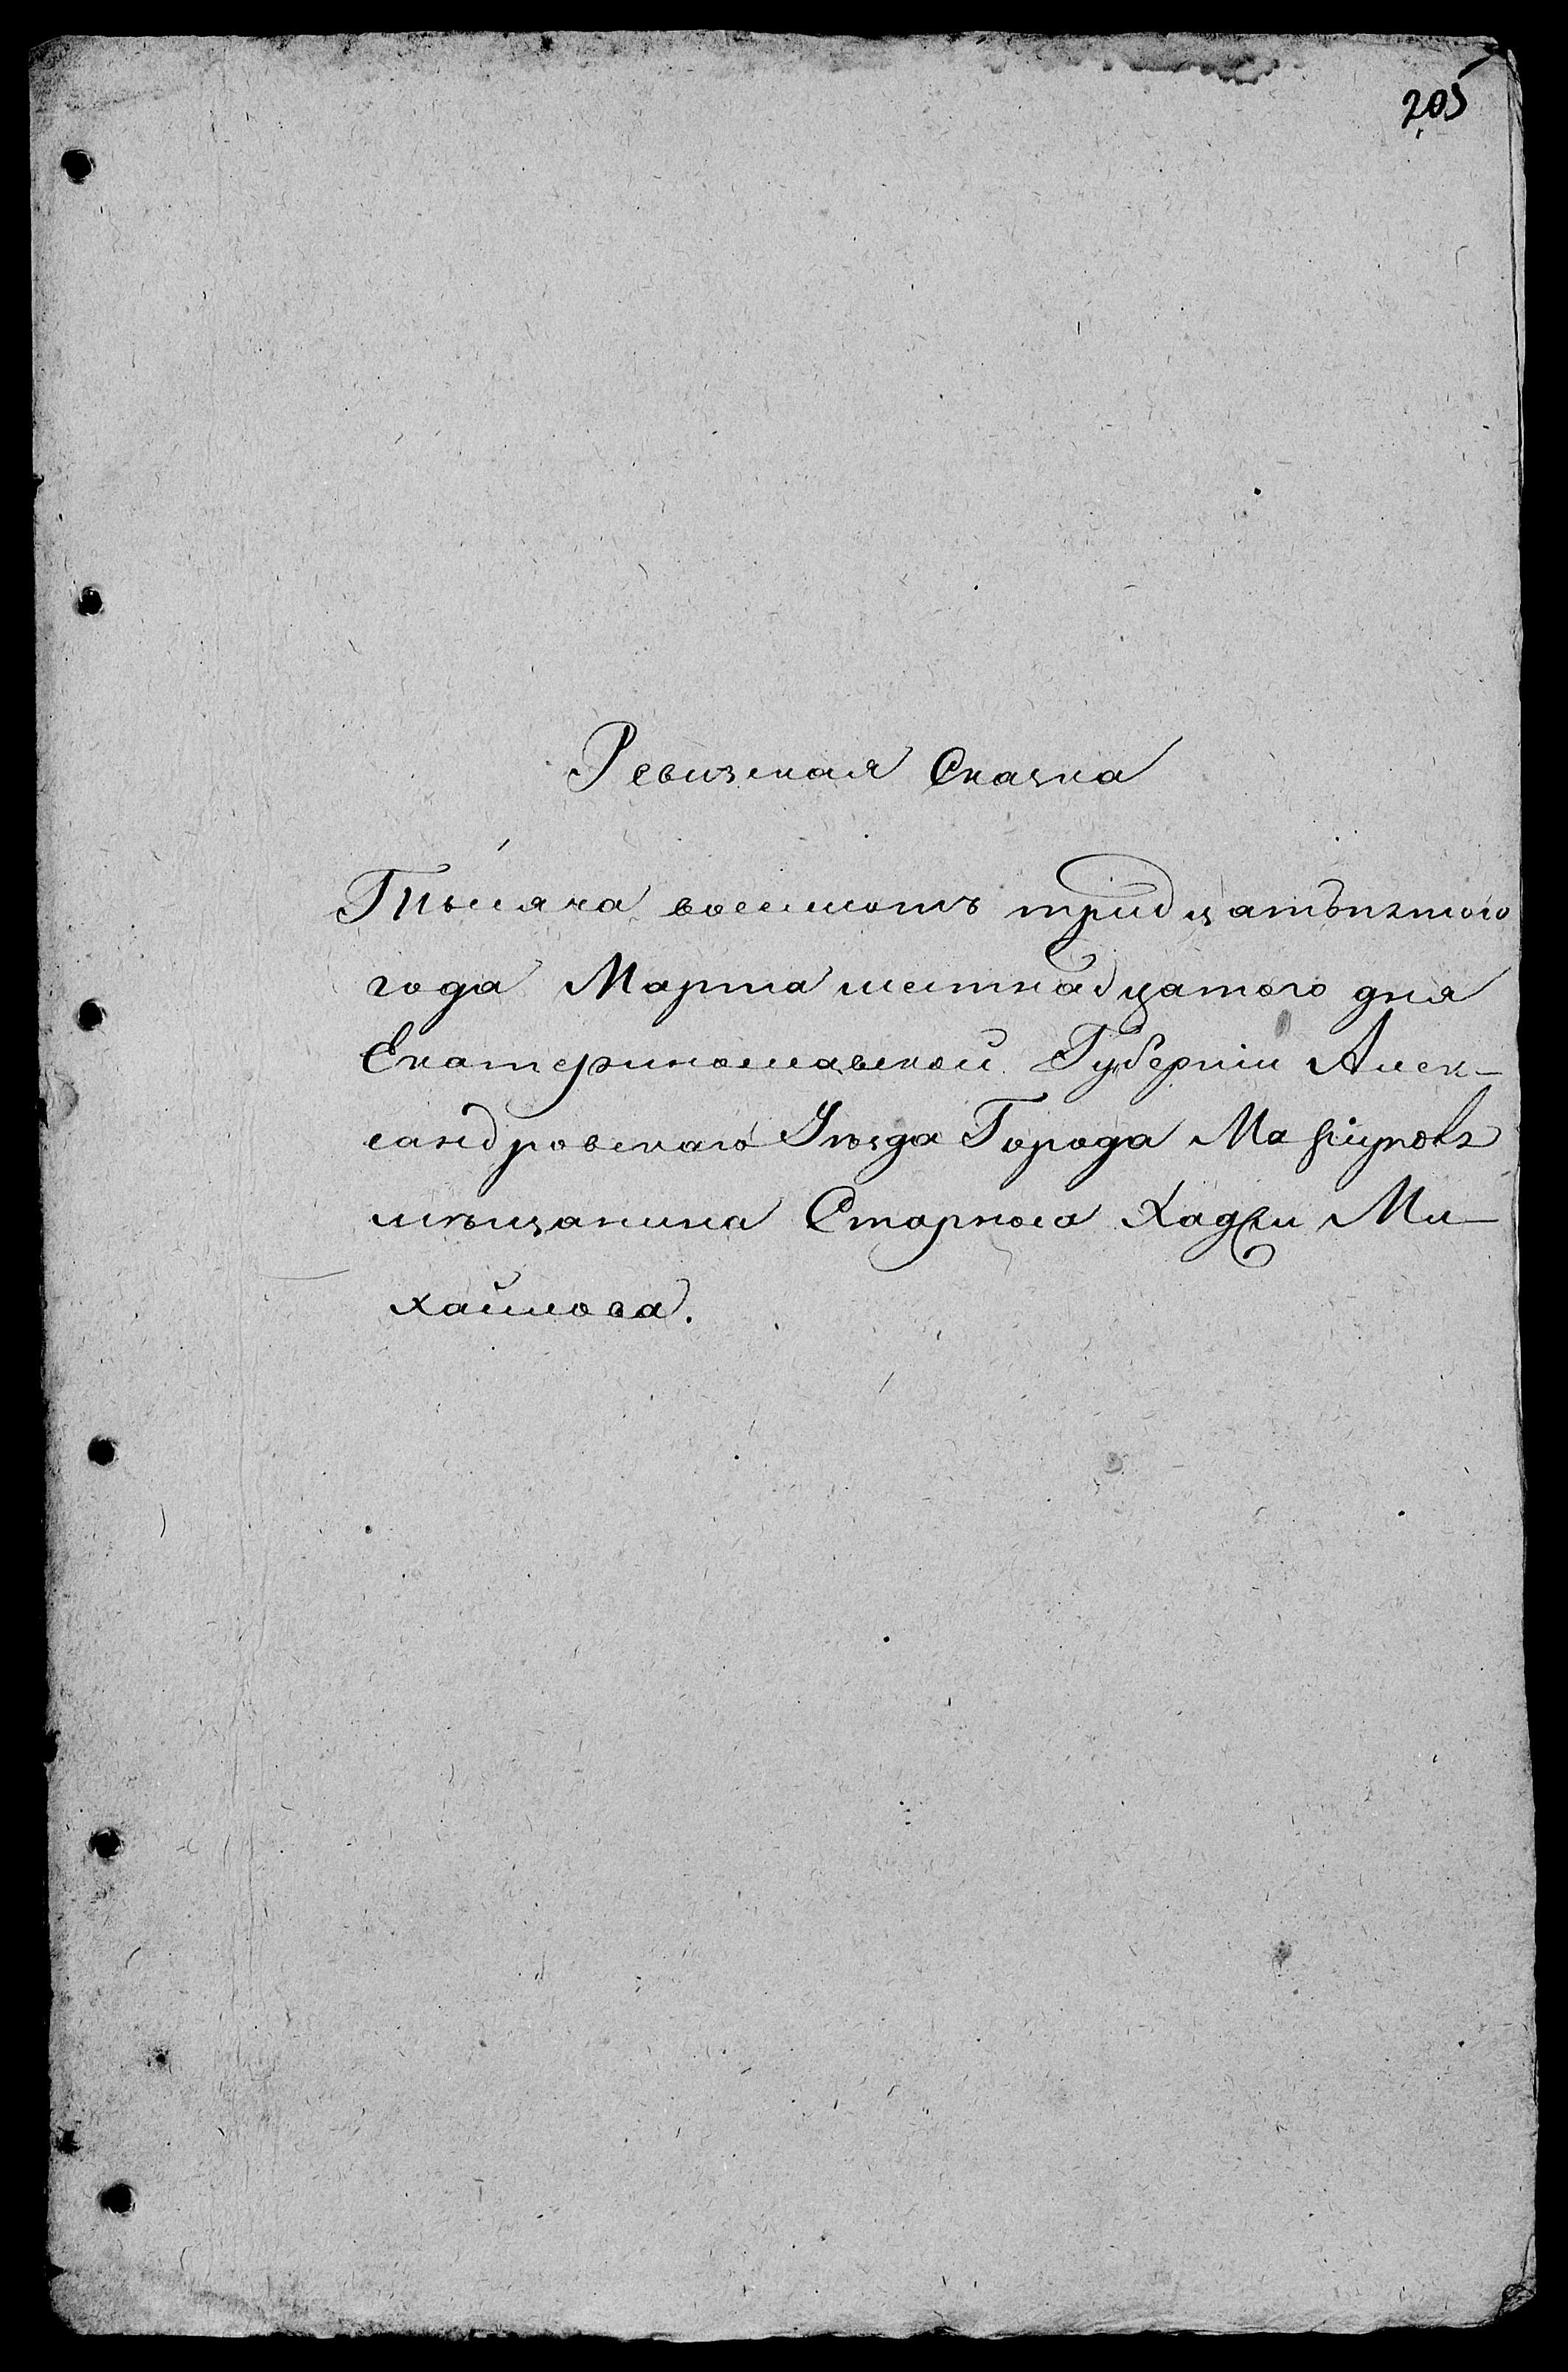 205
Ревизская Сказка
Тысяча восемсотъ тридцатьпятого
года Марта шестнадцатого дня
Екатеринославской Губернiи Алек-
сандровскаго Уѣзда Города Марiуполя
мѣщанина Старкоса Хаджи Ми-
хайлова.